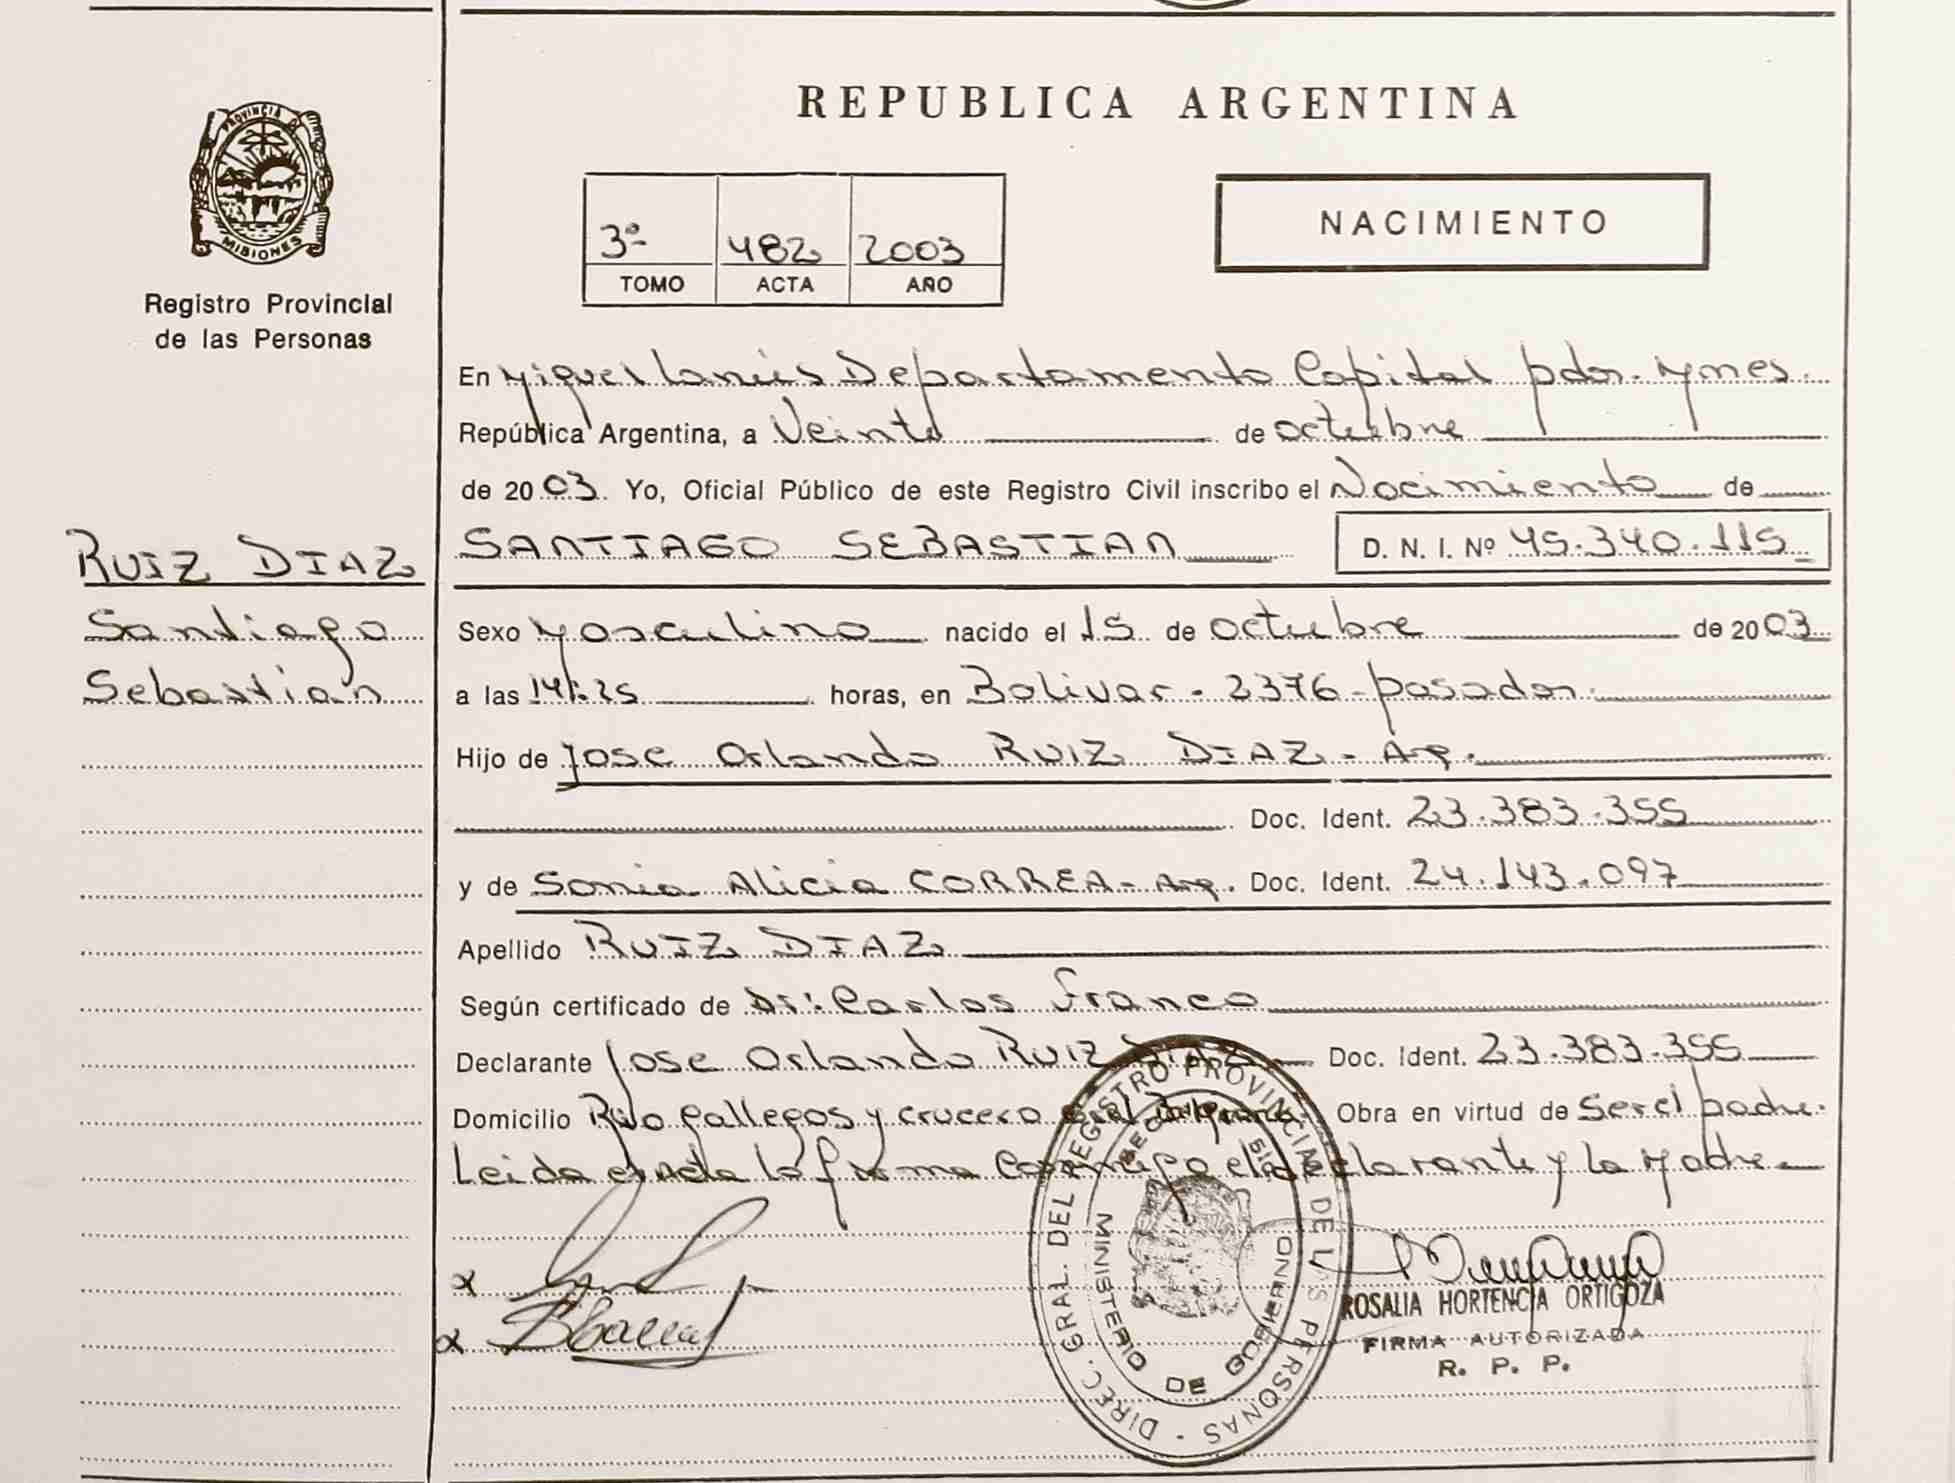 PROVINCIA DE
MISIONES
Registro Provincial
de las Personas
RUIZ DIAZ
Santiago
Sebastian
REPUBLICA ARGENTINA
3º 482 2003
TOMO ACTA AÑO
NACIMIENTO
En Miguel Lanús Departamento Capital pdas. Mnes.
República Argentina, a Veinte de octubre
de 2003. Yo, Oficial Público de este Registro Civil inscribo el Nacimiento de
SANTIAGO SEBASTIAN D. N. I. Nº 45.340.115
Sexo Masculino nacido el 15 de octubre de 2003
a las 14:25 horas, en Bolivar - 2376 - posadas.
Hijo de Jose Orlando RUIZ DIAZ - Arg.
Doc. Ident. 23.383.355
y de Sonia Alicia CORREA - Arg. Doc. Ident. 24.143.097
Apellido RUIZ DIAZ
Según certificado de Dr: Carlos Franco
Declarante Jose Orlando RUIZ DIAZ Doc. Ident. 23.383.355
Domicilio Rio gallegos y crucero Gral Belgrano. Obra en virtud de Ser el padre.
Leida el acta la firma conmigo el declarante y la Madre
x
x
DIREC. GRAL. DEL REGISTRO PROVINCIAL DE LAS PERSONAS
MINISTERIO DE GOBIERNO
ROSALIA HORTENCIA ORTIGOZA
FIRMA AUTORIZADA
R. P. P.